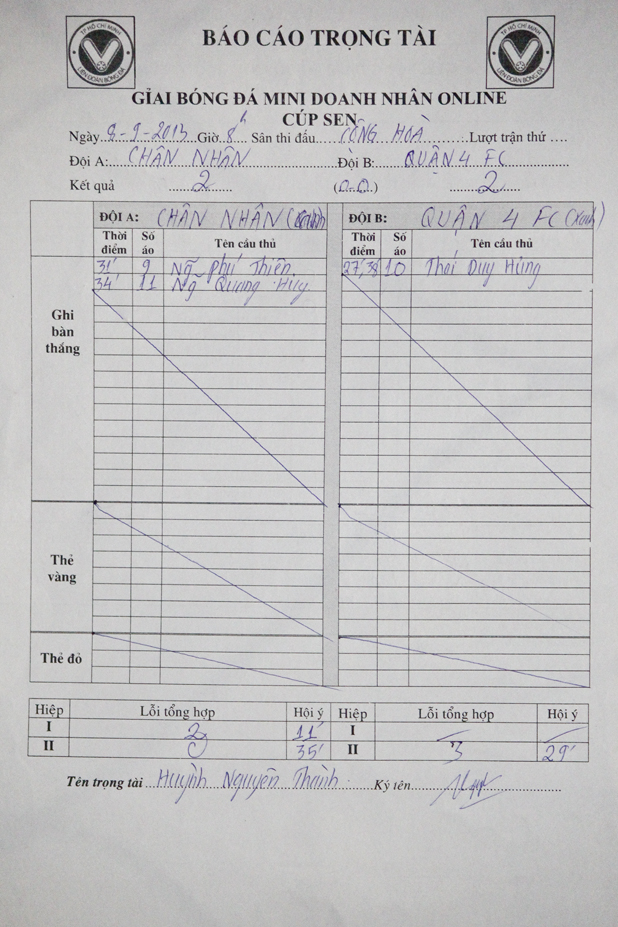 TP HỒ CHÍ MINH
LIÊN ĐOÀN BÓNG ĐÁ
BÁO CÁO TRỌNG TÀI
TP HỒ CHÍ MINH
LIÊN ĐOÀN BÓNG ĐÁ
GIẢI BÓNG ĐÁ MINI DOANH NHÂN ONLINE
CÚP SEN
Ngày 8-9-2013 Giờ: 8h Sân thi đấu: CỘNG HOÀ Lượt trận thứ ....
Đội A: CHÂN NHÂN Đội B: QUẬN 4 FC
Kết quả 2 (0-0) 2
ĐỘI A: CHÂN NHÂN ĐỘI B: QUẬN 4 FC (Xanh)
Thời điểm Số áo Tên cầu thủ Thời điểm Số áo Tên cầu thủ
Ghi bàn thắng
31' 9 Ng~ Phú Thiên. 27', 38' 10 Thái Duy Hùng
34' 11 Ng~ Quang Huy.
Thẻ vàng
Thẻ đỏ
Hiệp Lỗi tổng hợp Hội ý Hiệp Lỗi tổng hợp Hội ý
I 2 11' I
II 35' II 3 29'
Tên trọng tài Huỳnh Nguyên Thành. Ký tên